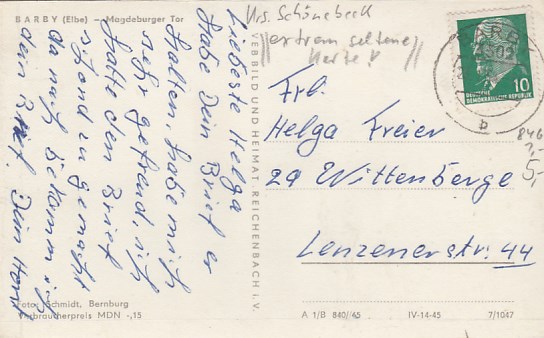 BARBY (Elbe) — Magdeburger Tor
Krs. Schönebeck
extrem seltene
Karte
Liebeste Helga
habe Dein Brief er
halten, habe mich
sehr gefreud, ich
hatte den Brief
schon zu gemacht
da nach bekomm ich
dein Brief. Dein Horst
VEB BILD UND HEIMAT, REICHENBACH i. V.
10
DEUTSCHE
DEMOKRATISCHE REPUBLIK
b
Frl.
Helga Freier
29 Wittenberge
Lenzenerstr. 44
846
5,-
Foto: Schmidt, Bernburg
Verbraucherpreis MDN -,15
A 1/B 840/45 IV-14-45 7/1047